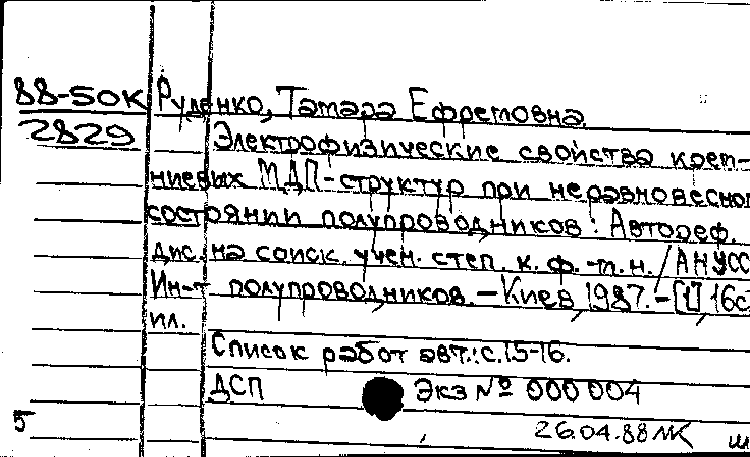 88-50К Руденко, Тамара Ефремовна
2829 Электрофизические свойства крем-
ниевых МДП-структур при неравновесном
состоянии полупроводников: Автореф.
дис. на соиск. учен. степ. к. ф.-м.н. / АН УССР
Ин-т полупроводников. - Киев, 1987. - [1], 16с.
ил.
Список работ авт.: с.15-16.
ДСП Экз № 000004
5 26.04.88